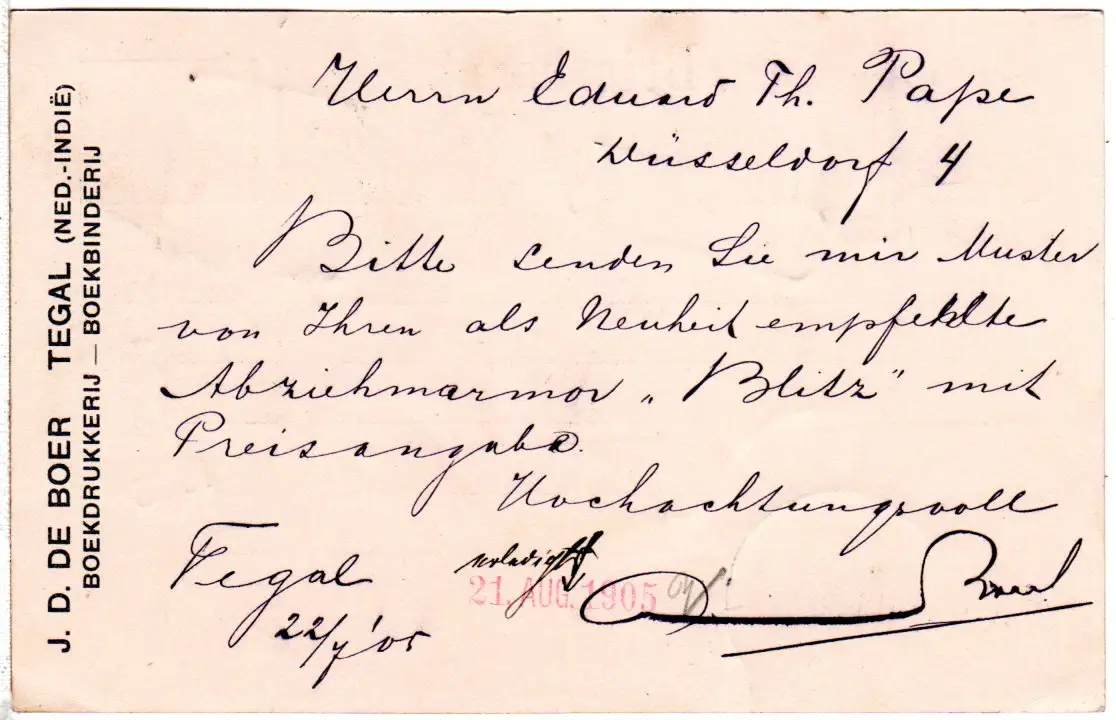 J. D. DE BOER TEGAL (NED.-INDIË)
BOEKDRUKKERIJ — BOEKBINDERIJ
Herrn Eduard Th. Pape
Düsseldorf 4
Bitte senden Sie mir Muster
von Ihren als Neuheit empfehlte
Abziehmarmor „Blitz" mit
Preisangabe.
Hochachtungsvoll
Tegal
erledigt
21. AUG. 1905
22/7'05